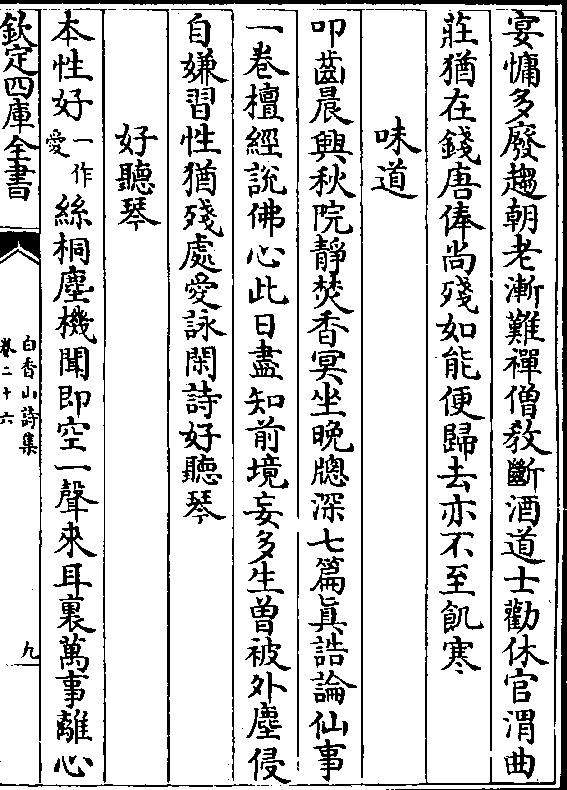 宴慵多廢趨朝老漸難禪僧敎斷酒道士勸休官渭曲
莊猶在錢唐俸尚殘如能便歸去亦不至飢寒
味道
叩齒晨興秋院靜焚香冥坐晚牕深七篇眞誥論仙事
一巻檀經說佛心此日盡知前境妄多生曾被外塵侵
自嫌習性猶殘處愛詠閑詩好聽琴
好聽琴
本性好一作愛絲桐塵機聞即空一聲來耳裏萬事離心
欽定四庫全書
白香山詩集
卷二十六
九